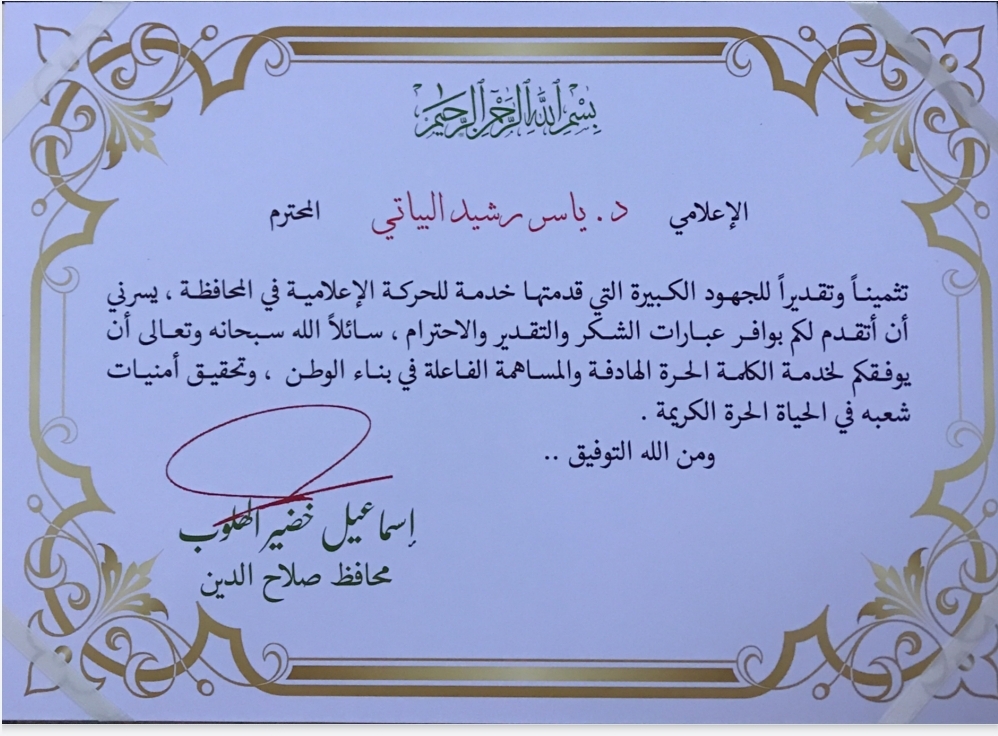 بسم الله الرحمن الرحيم
الإعلامي د. ياسر رشيد البياتي المحترم
تثميناً وتقديراً للجهود الكبيرة التي قدمتها خدمة للحركة الإعلامية في المحافظة ، يسرني
أن أتقدم لكم بوافر عبارات الشكر والتقدير والاحترام ، سائلاً الله سبحانه وتعالى أن
يوفقكم لخدمة الكلمة الحرة الهادفة والمساهمة الفاعلة في بناء الوطن ، وتحقيق أمنيات
شعبه في الحياة الحرة الكريمة .
ومن الله التوفيق ..
إسماعيل خضير الهلوب
محافظ صلاح الدين